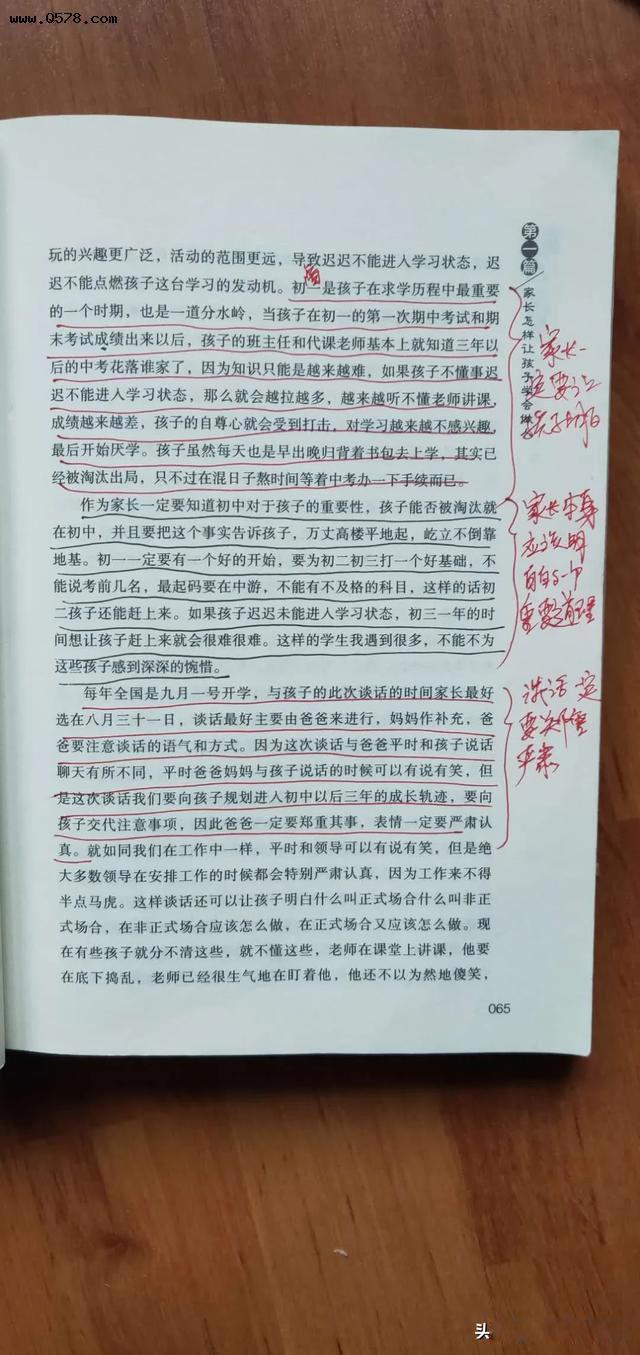 www.0578.com
玩的兴趣更广泛，活动的范围更远，导致迟迟不能进入学习状态，迟
迟不能点燃孩子这台学习的发动机。初一是孩子在求学历程中最重要
的一个时期，也是一道分水岭，当孩子在初一的第一次期中考试和期
末考试成绩出来以后，孩子的班主任和代课老师基本上就知道三年以
后的中考花落谁家了，因为知识只能是越来越难，如果孩子不懂事迟
迟不能进入学习状态，那么就会越拉越多，越来越听不懂老师讲课，
成绩越来越差，孩子的自尊心就会受到打击，对学习越来越不感兴趣，
最后开始厌学。孩子虽然每天也是早出晚归背着书包去上学，其实已
经被淘汰出局，只不过在混日子熬时间等着中考办一下手续而已。
作为家长一定要知道初中对于孩子的重要性，孩子能否被淘汰就
在初中，并且要把这个事实告诉孩子，万丈高楼平地起，屹立不倒靠
地基。初一一定要有一个好的开始，要为初二初三打一个好基础，不
能说考前几名，最起码要在中游，不能有不及格的科目，这样的话初
二孩子还能赶上来。如果孩子迟迟未能进入学习状态，初三一年的时
间想让孩子赶上来就会很难很难。这样的学生我遇到很多，不能不为
这些孩子感到深深的惋惜。
每年全国是九月一号开学，与孩子的此次谈话的时间家长最好
选在八月三十一日，谈话最好主要由爸爸来进行，妈妈作补充，爸
爸要注意谈话的语气和方式。因为这次谈话与爸爸平时和孩子说话
聊天有所不同，平时爸爸妈妈与孩子说话的时候可以有说有笑，但
是这次谈话我们要向孩子规划进入初中以后三年的成长轨迹，要向
孩子交代注意事项，因此爸爸一定要郑重其事，表情一定要严肃认
真。就如同我们在工作中一样，平时和领导可以有说有笑，但是绝
大多数领导在安排工作的时候都会特别严肃认真，因为工作来不得
半点马虎。这样谈话还可以让孩子明白什么叫正式场合什么叫非正
式场合，在非正式场合应该怎么做，在正式场合又应该怎么做。现
在有些孩子就分不清这些，就不懂这些，老师在课堂上讲课，他要
在底下捣乱，老师已经很生气地在盯着他，他还不以为然地傻笑，
065
第一篇
家长怎样让孩子学会做
家长一
定要让
孩子明白
家长本身
应该明
白的一个
重要道理
谈话一定
要
严肃
头